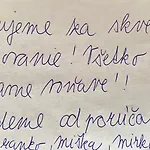 ujeme za skve
ovanie! Všetko
ame
deme odporúča
ranko, miška, mirk